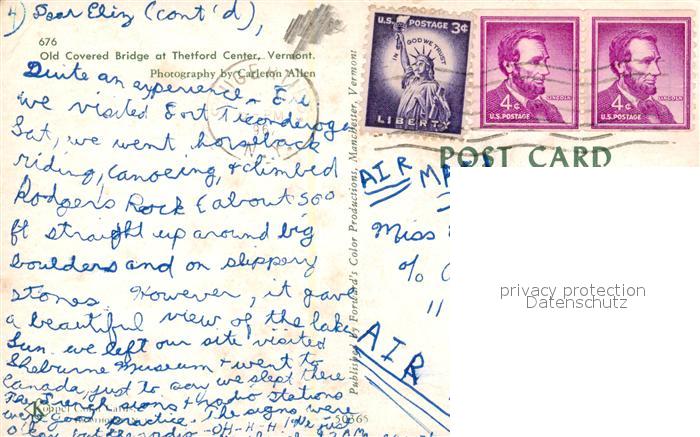 4) Dear Eliz (cont'd),
676
Old Covered Bridge at Thetford Center, Vermont.
Photography by Carleton Allen
Quite an experience - Fri
we visited Fort Ticonderoga
Sat, we went horseback
riding, canoeing, & climbed
Rodgers Rock (about 500
ft straight up around big
boulders and on slippery
stones. However, it gave
a beautiful view of the lake
Sun. we left our site visited
Shelburne Museum & went to
Canada, just to say we slept there
The French signs & radio stations
were good practice. The signs were
okay but the radio -OH-H-H! We just
Published by Forward's Color Productions, Manchester, Vermont
50365
U.S. POSTAGE 3¢
IN GOD WE TRUST
LIBERTY
4¢
LINCOLN
U.S. POSTAGE
4¢
LINCOLN
U.S. POSTAGE
POST CARD
AIR
Miss
c/o
11
AIR
privacy protection
Datenschutz